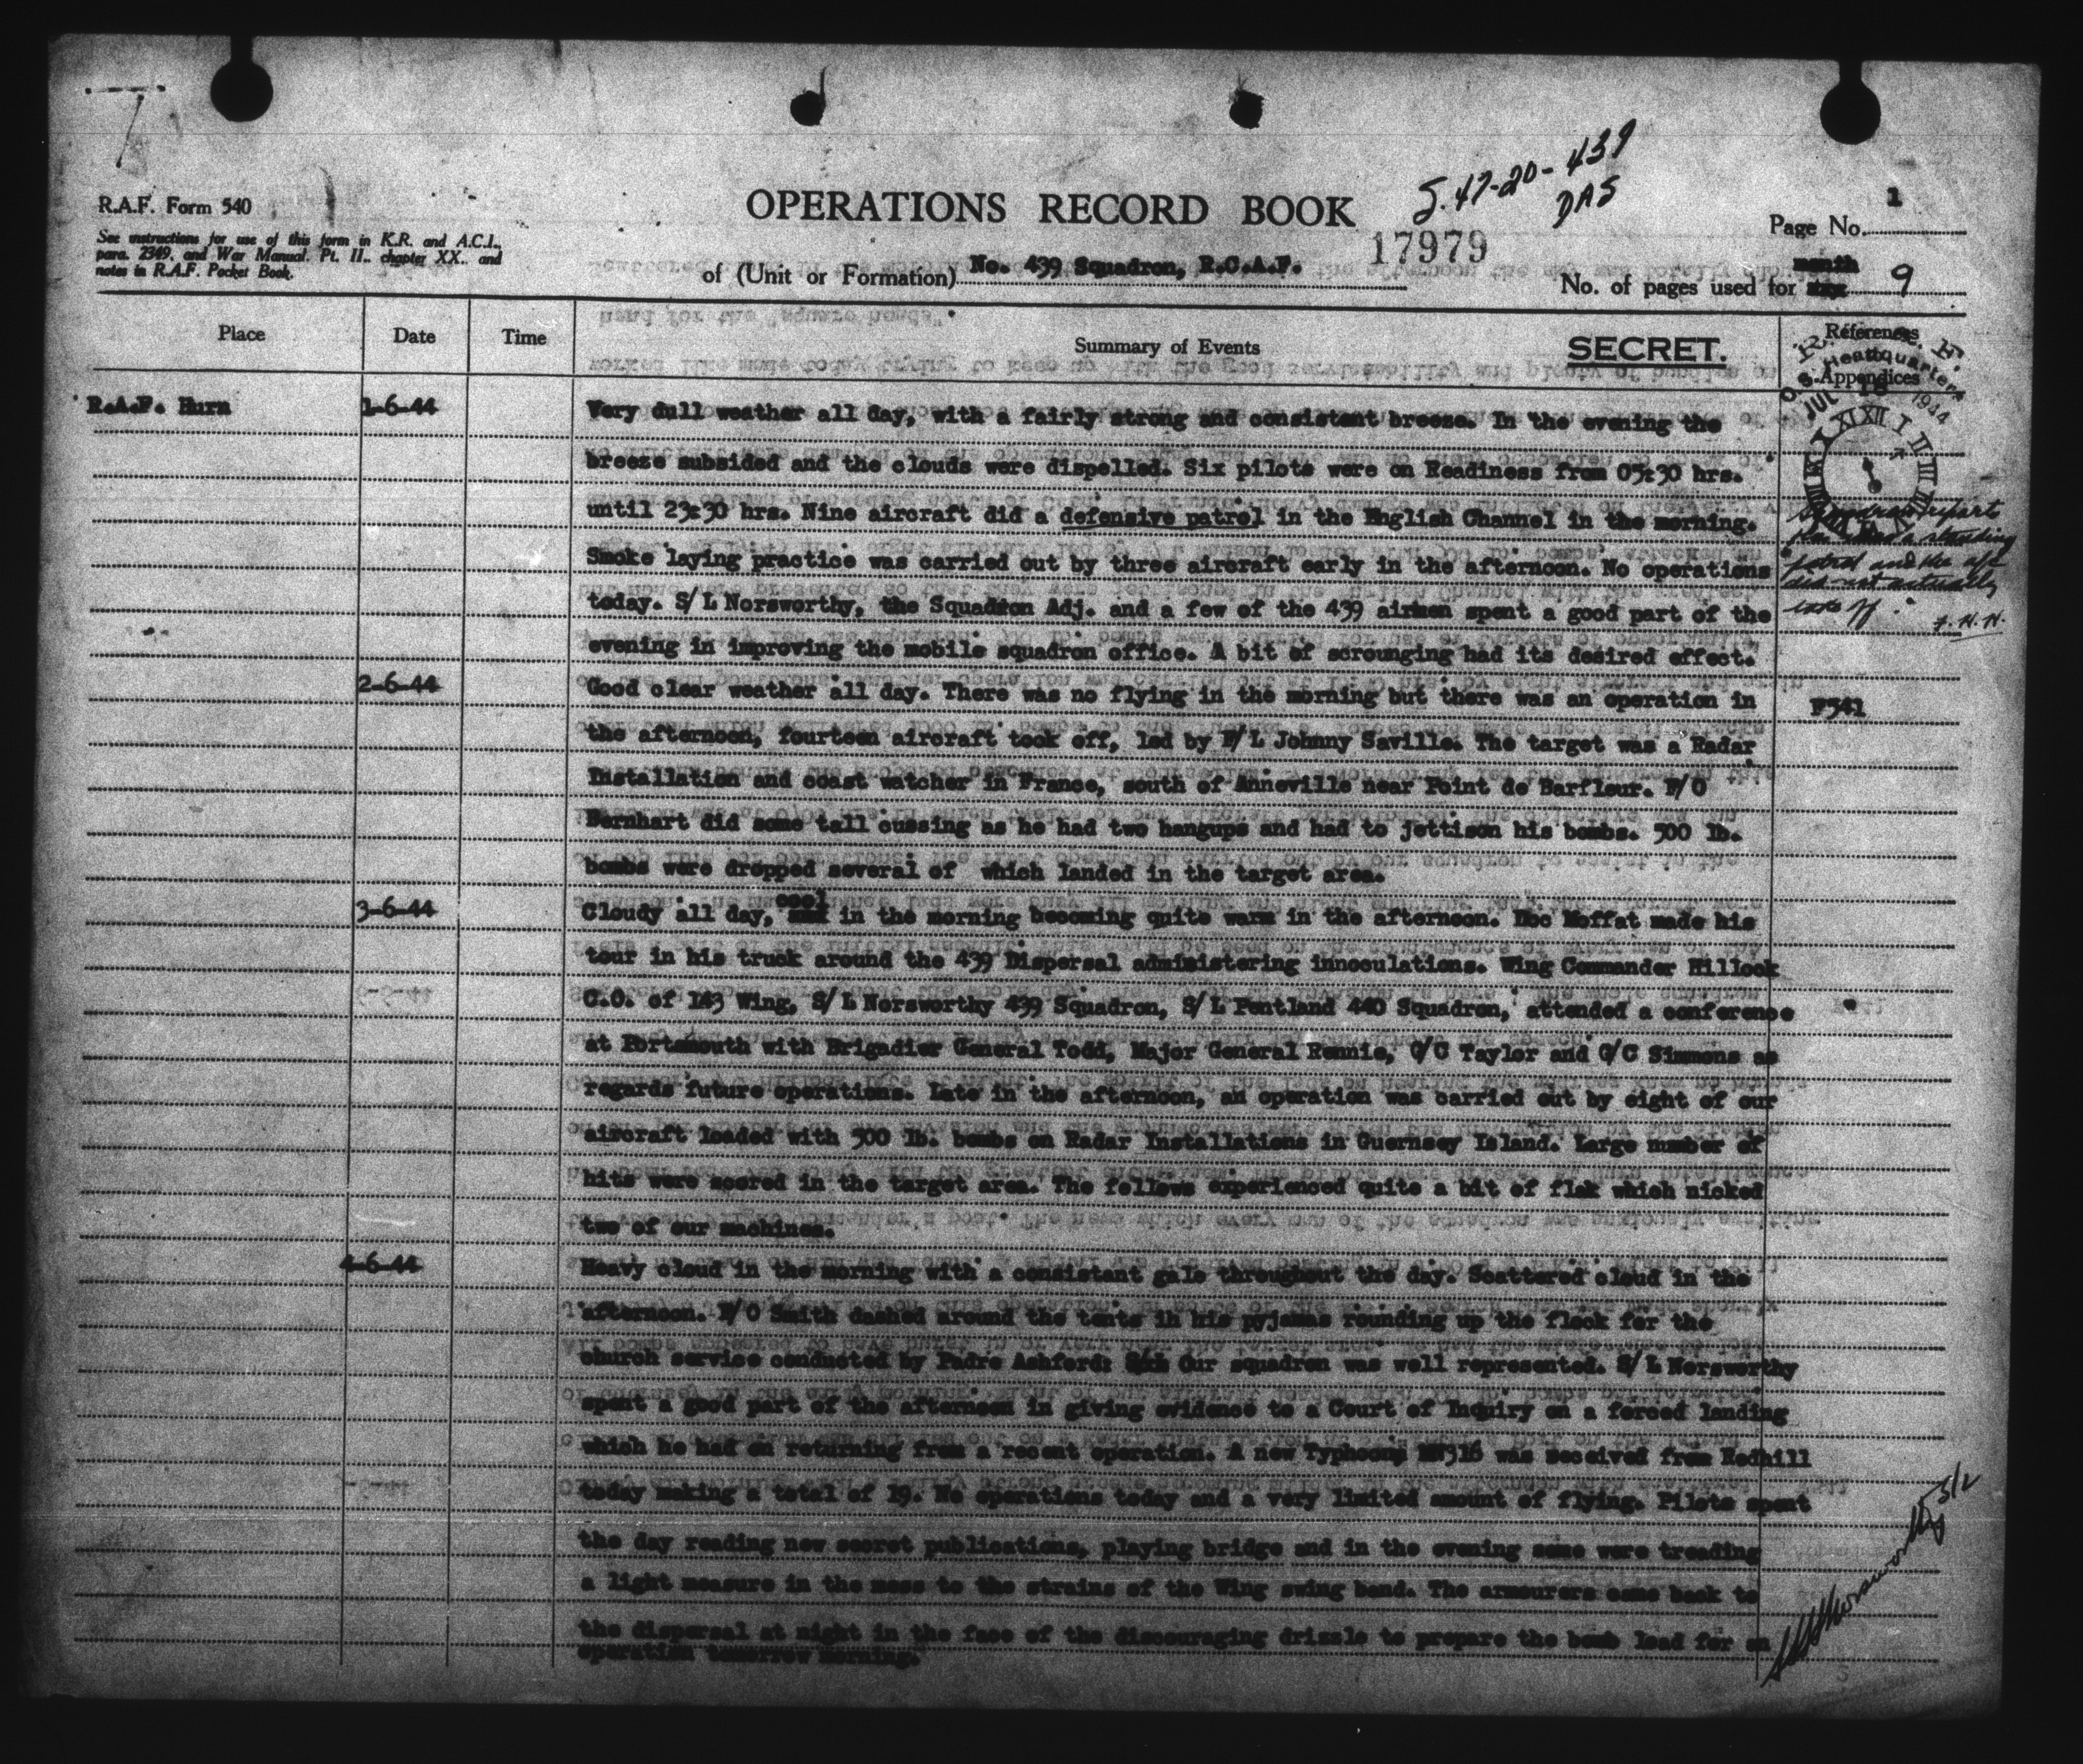 S.47-20-439
DAS
R.A.F. Form 540
OPERATIONS RECORD BOOK
See instructions for use of this form in K.R. and A.C.I.,
para. 2349, and War Manual, Pt. II., chapter XX., and
notes in R.A.F. Pocket Book.
of (Unit or Formation) No. 439 Squadron, R.C.A.F.
17979
Page No. 1
No. of pages used for month day 9
Place Date Time Summary of Events SECRET. References to Appendices
Headquarters
JUL 18 1944
R.A.F. Hurn 1-6-44 Very dull weather all day, with a fairly strong and consistent breeze. In the evening the
breeze subsided and the clouds were dispelled. Six pilots were on Readiness from 05:30 hrs.
until 23:30 hrs. Nine aircraft did a defensive patrol in the English Channel in the morning.
Smoke laying practice was carried out by three aircraft early in the afternoon. No operations
today. S/L Norsworthy, the Squadron Adj. and a few of the 439 airmen spent a good part of the
evening in improving the mobile squadron office. A bit of scrounging had its desired effect.
Squadron report
a standing
patrol and the a/c
did not actually
take off.
F.H.H.
2-6-44 Good clear weather all day. There was no flying in the morning but there was an operation in F541
the afternoon, fourteen aircraft took off, led by F/L Johnny Saville. The target was a Radar
Installation and coast watcher in France, south of Anneville near Point de Barfleur. F/O
Bernhart did some tall cussing as he had two hangups and had to jettison his bombs. 500 lb.
bombs were dropped several of which landed in the target area.
3-6-44 Cloudy all day, cool in the morning becoming quite warm in the afternoon. Doc Moffat made his
tour in his truck around the 439 Dispersal administering innoculations. Wing Commander Hillock
C.O. of 143 Wing, S/L Norsworthy 439 Squadron, S/L Pentland 440 Squadron, attended a conference
at Portsmouth with Brigadier General Todd, Major General Rennie, G/C Taylor and G/C Simmons as
regards future operations. Late in the afternoon, an operation was carried out by eight of our
aircraft loaded with 500 lb. bombs on Radar Installations in Guernsey Island. Large number of
hits were scored in the target area. The fellows experienced quite a bit of flak which nicked
two of our machines.
4-6-44 Heavy cloud in the morning with a consistent gale throughout the day. Scattered cloud in the
afternoon. F/O Smith dashed around the tents in his pyjamas rounding up the flock for the
church service conducted by Padre Ashford: Our squadron was well represented. S/L Norsworthy
spent a good part of the afternoon in giving evidence to a Court of Inquiry on a forced landing
which he had on returning from a recent operation. A new Typhoon, MN316 was received from Redhill
today making a total of 19. No operations today and a very limited amount of flying. Pilots spent
the day reading new secret publications, playing bridge and in the evening some were treading
a light measure in the mess to the strains of the Wing swing band. The armourers came back to
the dispersal at night in the face of the discouraging drizzle to prepare the bomb load for an
operation tomorrow morning.
Norsworthy S/L